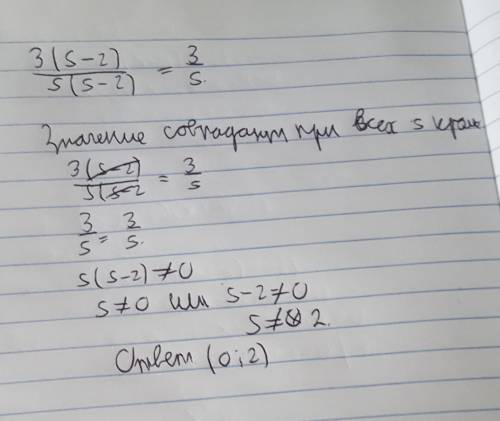 3(s-2)/s(s-2) = 3/s.
Значение совпадают при всех s кроме
3(s-2)/s(s-2 = 3/s
3/s = 3/s.
s(s-2)≠0
s≠0 или s-2≠0
s≠ 2.
Ответ (0;2)